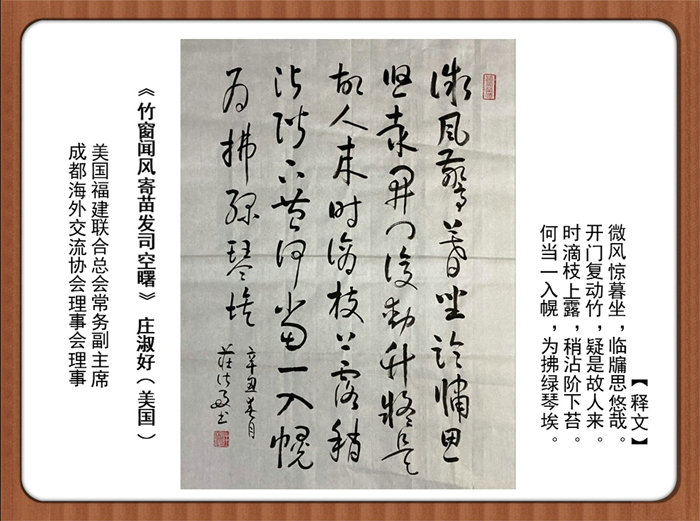 【释文】
微风惊暮坐，临牖思悠哉。
开门复动竹，疑是故人来。
时滴枝上露，稍沾阶下苔。
何当一入幌，为拂绿琴埃。
微風驚暮坐臨牖思
悠哉開门復動竹疑是
故人来時滴枝上露稍
沾階下苔何當一入幌
为拂綠琴埃
辛丑春月
莊淑好书
《竹窗闻风寄苗发司空曙》 庄淑好（美国）
美国福建联合总会常务副主席
成都海外交流协会理事会理事